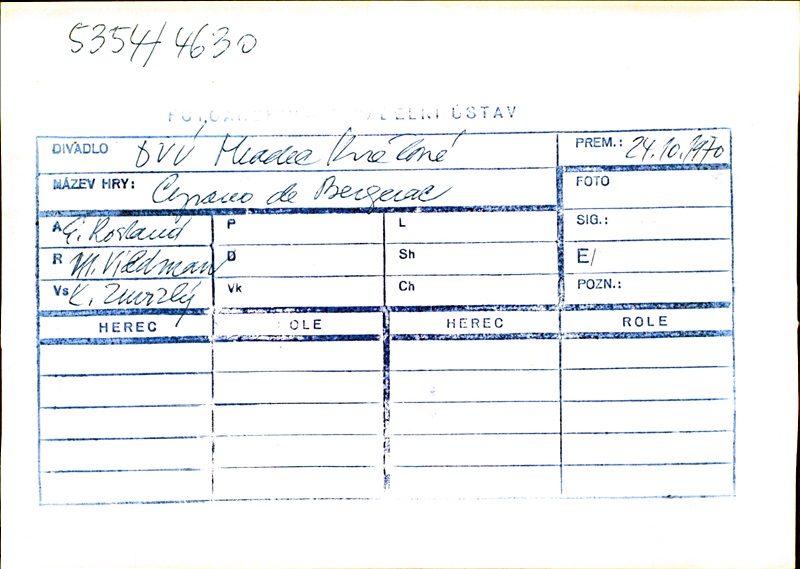 5354/4630
DIVADELNÍ ÚSTAV
DIVADLO DVÚ Hradec Králové PREM.: 24.10.1970
NÁZEV HRY: Cyrano de Bergerac FOTO
A E. Rostand P L SIG.:
R M. Vildman D Sh E/
Vs K. Zmrzlý Vk Ch POZN.:
HEREC ROLE HEREC ROLE